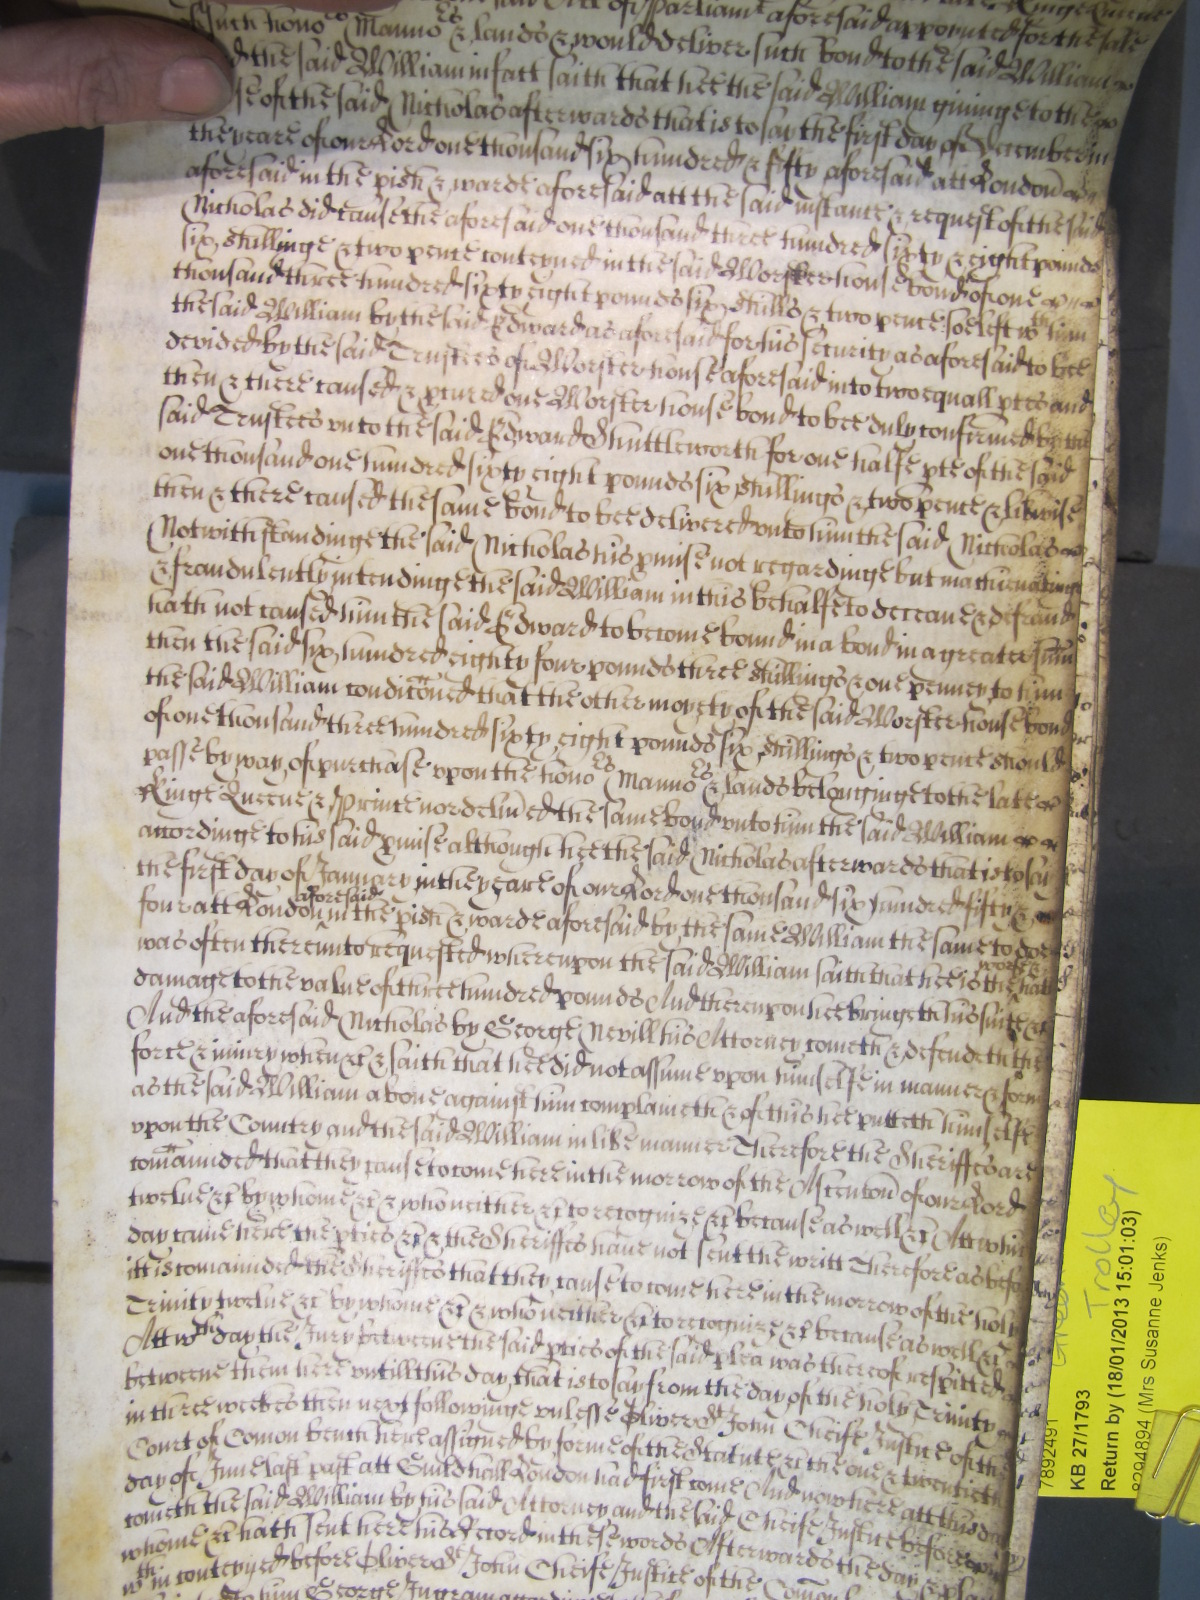 said Act of Parliamt aforesaid appointed for the sale
such honors Mannors & lands & would deliver such bond to the said William
the said William in fact saith that hee the said William giveinge to the
of the said Nicholas afterwards that is to say the first day of December in
the yeare of our Lord one thousand six hundred & fifty aforesaid att London
aforesaid in the pish & warde aforesaid att the said instance & request of the said
Nicholas did cause the aforesaid one thousand three hundred sixty & eight pounds
six shillinge & two pence conteyned in the said Worster house bond of one
thousand three hundred sixty eight pounds six shills & two pence soe left wth him
the said William by the said Edward as aforesaid for his security as aforesaid to bee
devided by the said Trustees of Worster house aforesaid into two equall ptes and
then & there caused & pcured one Worster house bond to bee duly confirmed by the
said Trustees unto the said Edward Shuttleworth for one halfe pte of the said
one thousand one hundred sixty eight pounds six shillings & two pence & likewise
then & there caused the same bond to bee delivered unto him the said Nicholas
Notwithstandinge the said Nicholas his pmise not regardinge but machinatinge
& fraudulently intendinge the said William in this behalfe to deceave & defraud
hath not caused him the said Edward to become bound in a bond in a greater sum
then the said six hundred eighty four pounds three shillings & one penney to him
the said William condiconed that the other moyety of the said Worster house bond
of one thousand three hundred sixty eight pounds six shillings & two pence should
passe by way of purchase upon the honors Mannors & lands belonginge to the late
Kinge Queene & Prince nor delived the same bond unto him the said William
accordinge to his said pmise although hee the said Nicholas afterwards that is to say
the first day of January in the yeare of our Lord one thousand six hundred fifty &
four att London aforesaid in the pish & warde aforesaid by the same William the same to doe
was often thereunto requested whereupon the said William saith that hee is the worse & hath
damage to the value of three hundred pounds And thereupon hee bringeth his suite &c
And the aforesaid Nicholas by George Nevill his Attorney cometh & defendeth the
force & iniury when &c & saith that hee did not assume upon himselfe in manner & forme
as the said William above against him complaineth & of this hee putteth himselfe
upon the Country and the said William in like manner Therefore the Sheriffes are
comaunded that they cause to come here in the morrow of the Ascention of our Lord
twelve &c by whome &c & who neither &c to recognize &c because as well &c Att which
day came here the pties &c & the Sheriffes have not sent the writt Therefore as before
itt is comaunded the Sheriffes that they cause to come here in the morrow of the holy
Trinity twelve &c by whome &c & who neither &c to recognize &c because as well &c
Att wch day the Jury betweene the said pties of the said plea was thereof respitted
betweene them here untill this day that is to say from the day of the holy Trinity
in three weekes then next followinge unlesse Oliver St John Cheife Justice of the
Court of Comon bench here assigned by forme of the Statute &c the one & twentieth
day of June last past att Guildhall London had first come And now here att this day
cometh the said William by his said Attorney and the said Cheife Justice before
whome &c hath sent here his Record in these words Afterwards the day & place
wthin conteyned before Oliver St John Cheife Justice of the Comon
to him George Ingram
Trolley
78924
KB 27/1793
Return by (18/01/2013 15:01:03)
8294894 (Mrs Susanne Jenks)